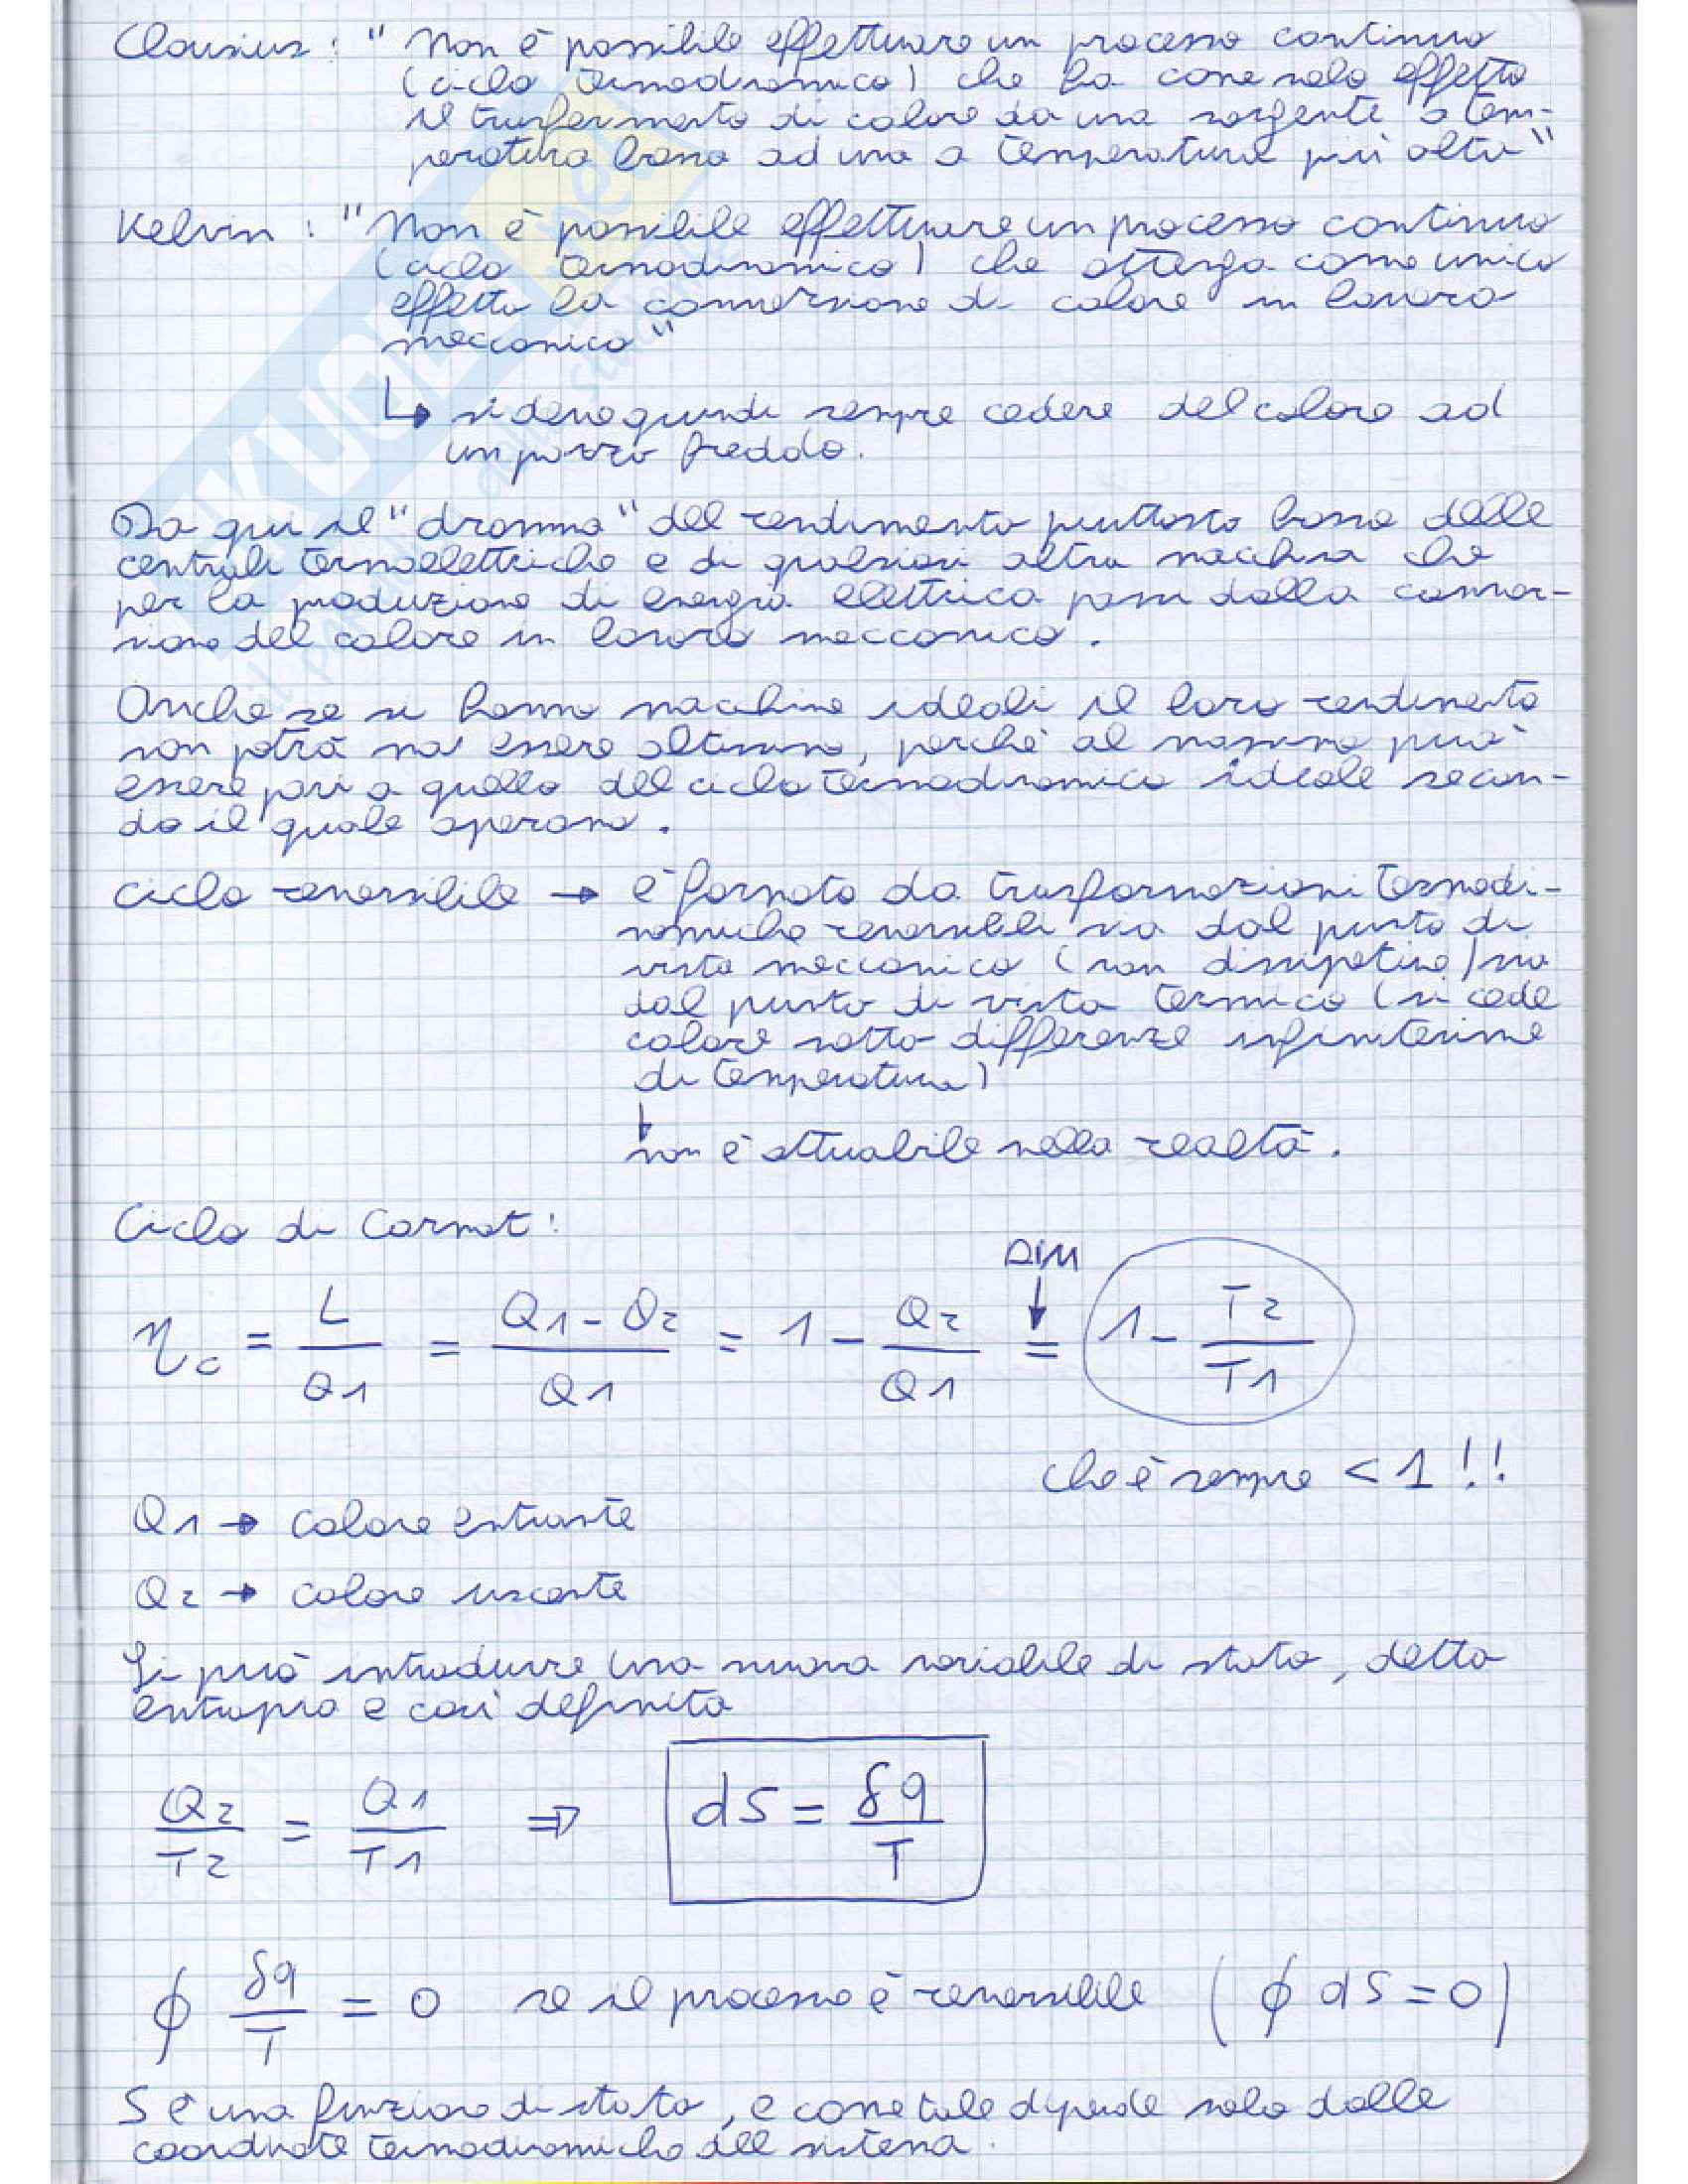 Clausius: "Non è possibile effettuare un processo continuo
(ciclo termodinamico) che ha come solo effetto
il trasferimento di calore da una sorgente a tem-
peratura bassa ad una a temperatura più alta"
Kelvin: "Non è possibile effettuare un processo continuo
(ciclo termodinamico) che ottenga come unico
effetto la conversione di calore in lavoro
meccanico"
↳ si deve quindi sempre cedere del calore ad
un pozzo freddo.
Da qui il "dramma" del rendimento piuttosto basso delle
centrali termoelettriche e di qualsiasi altra macchina che
per la produzione di energia elettrica passi dalla conver-
sione del calore in lavoro meccanico.
Anche se si hanno macchine ideali il loro rendimento
non potrà mai essere altissimo, perché al massimo può
essere pari a quello del ciclo termodinamico ideale secon-
do il quale operano.
Ciclo reversibile → è formato da trasformazioni termodi-
namiche reversibili sia dal punto di
vista meccanico (non dissipative) sia
dal punto di vista termico (si cede
calore sotto differenze infinitesime
di temperatura)
↓
non è attuabile nella realtà.
Ciclo di Carnot:
DIM
ηc = L/Q1 = (Q1-Q2)/Q1 = 1 - Q2/Q1 = 1 - T2/T1
che è sempre < 1!!
Q1 → calore entrante
Q2 → calore uscente
Si può introdurre una nuova variabile di stato, detta
entropia e così definita
Q2/T2 = Q1/T1 ⇒ dS = δq/T
∮ δq/T = 0 se il processo è reversibile (∮ dS = 0)
S è una funzione di stato, e come tale dipende solo dalle
coordinate termodinamiche del sistema.